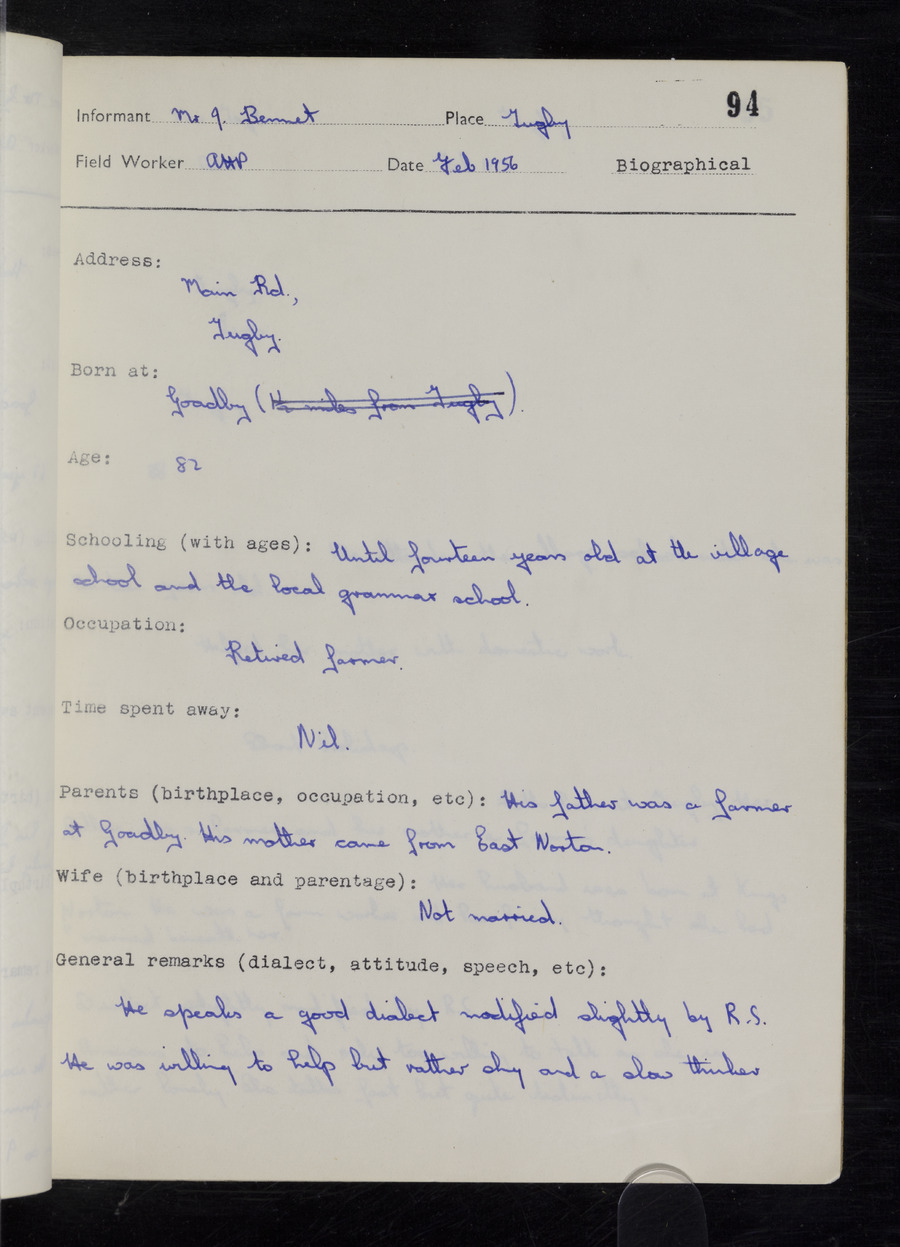 94
Informant Mr J. Bennet Place Tugby
Field Worker AHP Date Feb 1956 Biographical
Address:
Main Rd.,
Tugby.
Born at:
Goadby (1½ miles from Tugby).
Age: 82
Schooling (with ages): Until fourteen years old at the village
school and the local grammar school.
Occupation:
Retired farmer.
Time spent away:
Nil.
Parents (birthplace, occupation, etc): His father was a farmer
at Goadby. His mother came from East Norton.
Wife (birthplace and parentage):
Not married.
General remarks (dialect, attitude, speech, etc):
He speaks a good dialect modified slightly by R.S.
He was willing to help but rather shy and a slow thinker